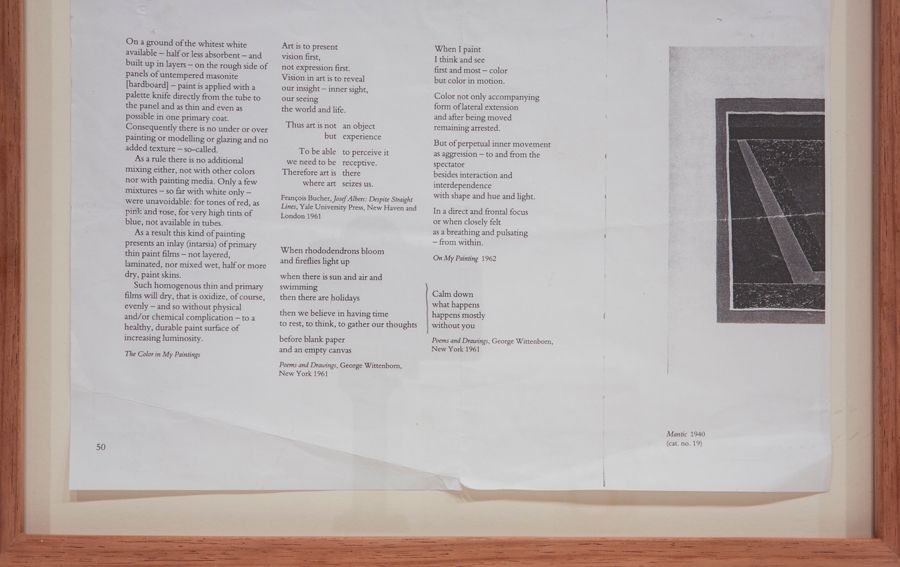 On a ground of the whitest white
available – half or less absorbent – and
built up in layers – on the rough side of
panels of untempered masonite
[hardboard] – paint is applied with a
palette knife directly from the tube to
the panel and as thin and even as
possible in one primary coat.
Consequently there is no under or over
painting or modelling or glazing and no
added texture – so-called.
As a rule there is no additional
mixing either, not with other colors
nor with painting media. Only a few
mixtures – so far with white only –
were unavailable: for tones of red, as
pink and rose, for very high tints of
blue, not available in tubes.
As a result this kind of painting
presents an inlay (intarsia) of primary
thin paint films – not layered,
laminated, nor mixed wet, half or more
dry, paint skins.
Such homogenous thin and primary
films will dry, that is oxidize, of course,
evenly – and so without physical
and/or chemical complication – to a
healthy, durable paint surface of
increasing luminosity.
The Color in My Paintings
50
Art is to present
vision first,
not expression first.
Vision in art is to reveal
our insight – inner sight,
our seeing
the world and life.
Thus art is not an object
but experience
To be able to perceive it
we need to be receptive.
Therefore art is there
where art seizes us.
François Bucher, Josef Albers: Despite Straight
Lines, Yale University Press, New Haven and
London 1961
When rhododendrons bloom
and fireflies light up
when there is sun and air and
swimming
then there are holidays
then we believe in having time
to rest, to think, to gather our thoughts
before blank paper
and an empty canvas
Poems and Drawings, George Wittenborn,
New York 1961
When I paint
I think and see
first and most – color
but color in motion.
Color not only accompanying
form of lateral extension
and after being moved
remaining arrested.
But of perpetual inner movement
as aggression – to and from the
spectator
besides interaction and
interdependence
with shape and hue and light.
In a direct and frontal focus
or when closely felt
as a breathing and pulsating
– from within.
On My Painting 1962
Calm down
what happens
happens mostly
without you
Poems and Drawings, George Wittenborn,
New York 1961
Mantic 1940
(cat. no. 19)